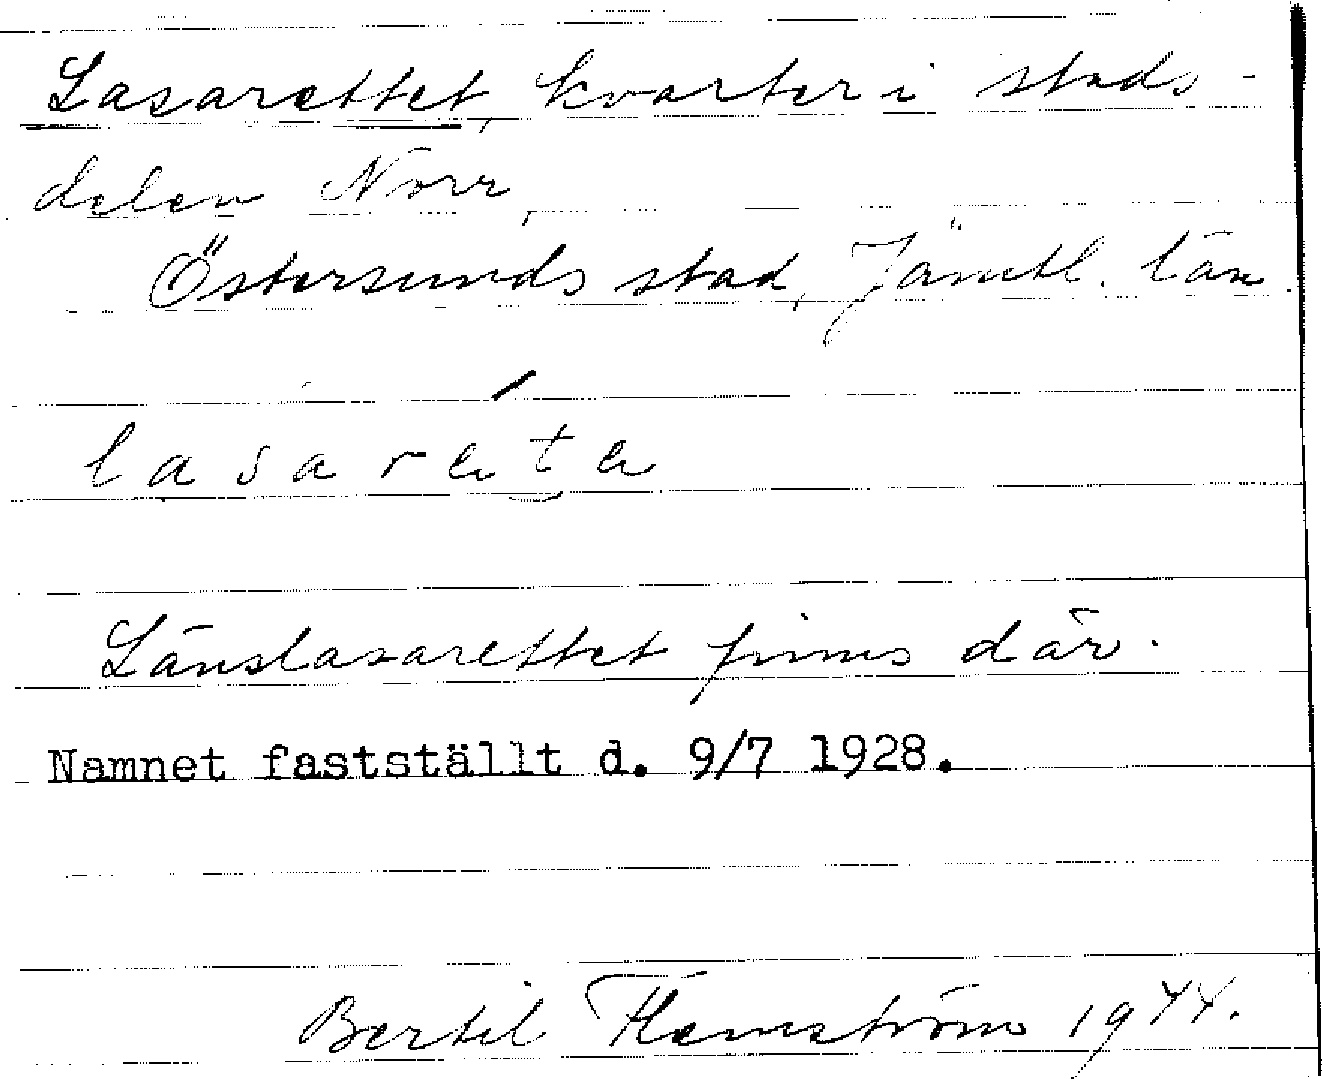 Lasarettet, kvarter i stads-
delen Norr,
Östersunds stad, Jämtl. län.
lasaréte
Länslasarettet finns där.
Namnet fastställt d. 9/7 1928.
Bertil Flemström 1944.